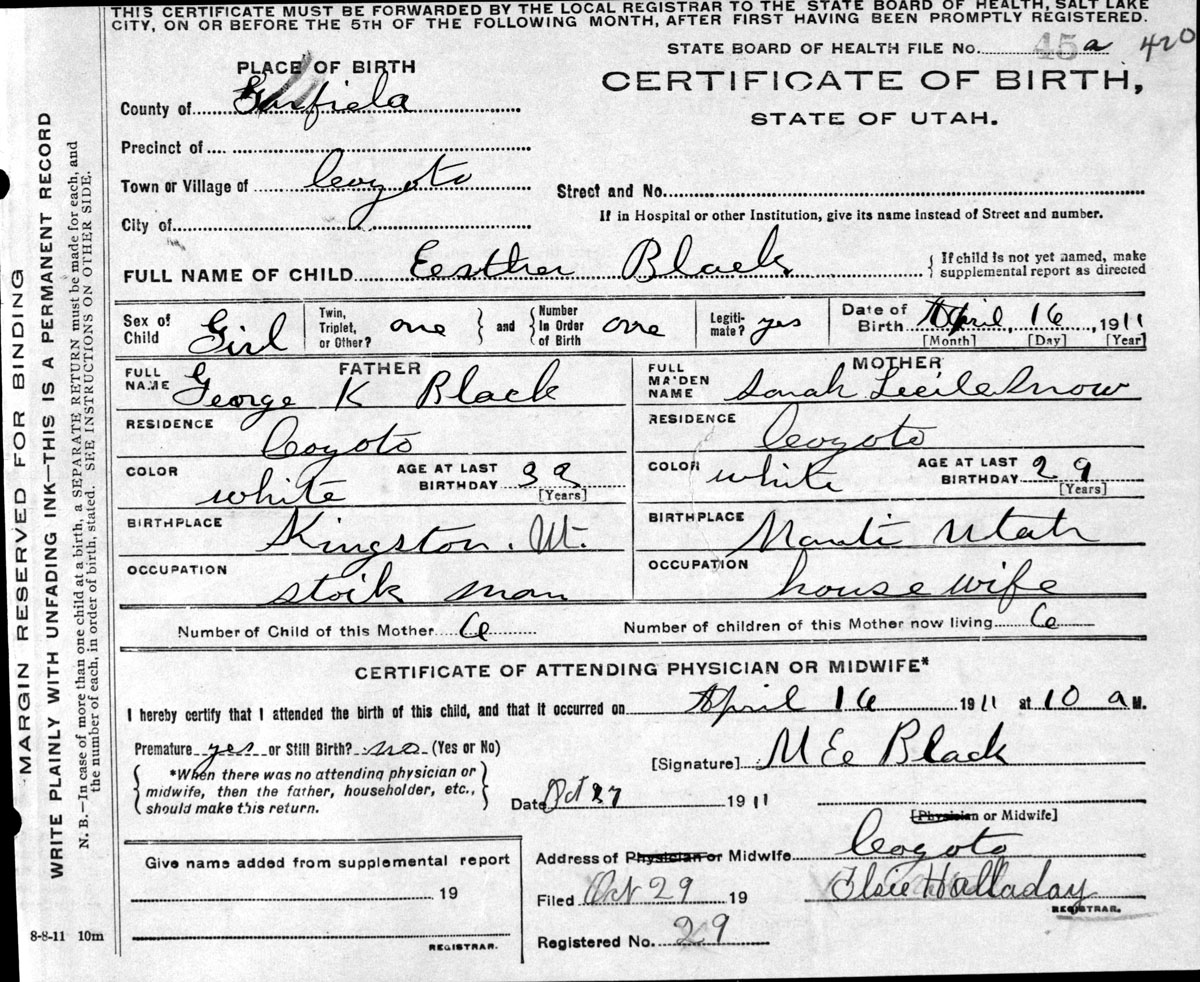 THIS CERTIFICATE MUST BE FORWARDED BY THE LOCAL REGISTRAR TO THE STATE BOARD OF HEALTH, SALT LAKE
CITY, ON OR BEFORE THE 5TH OF THE FOLLOWING MONTH, AFTER FIRST HAVING BEEN PROMPTLY REGISTERED.
STATE BOARD OF HEALTH FILE No. 45 a 420
PLACE OF BIRTH
CERTIFICATE OF BIRTH,
STATE OF UTAH.
County of Garfield
Precinct of
Town or Village of Coyoto
Street and No.
If in Hospital or other Institution, give its name instead of Street and number.
City of
FULL NAME OF CHILD Eesther Black { If child is not yet named, make
supplemental report as directed
Sex of Child Girl
Twin, Triplet, or Other? one } and { Number In Order of Birth one
Legiti-mate? yes
Date of Birth April, 16, 1911
[Month] [Day] [Year]
FATHER
FULL NAME George K Black
MOTHER
FULL MAIDEN NAME Sarah Lecile Snow
RESIDENCE Coyoto
RESIDENCE Coyoto
COLOR white AGE AT LAST BIRTHDAY 33 [Years]
COLOR white AGE AT LAST BIRTHDAY 29 [Years]
BIRTHPLACE Kingston. Ut.
BIRTHPLACE Manti Utah
OCCUPATION stoik man
OCCUPATION house wife
Number of Child of this Mother 6
Number of children of this Mother now living 6
CERTIFICATE OF ATTENDING PHYSICIAN OR MIDWIFE*
I hereby certify that I attended the birth of this child, and that it occurred on April 16 1911 at 10 a M.
Premature yes or Still Birth? no (Yes or No)
[Signature] M E Black
{ *When there was no attending physician or
midwife, then the father, householder, etc.,
should make this return. }
Date Oct 27 1911
[Physician or Midwife]
Give name added from supplemental report
19
REGISTRAR.
Address of Physician or Midwife Coyoto
Filed Oct 29 19
Elsie Halladay
REGISTRAR.
Registered No. 29
8-8-11 10m
MARGIN RESERVED FOR BINDING
WRITE PLAINLY WITH UNFADING INK—THIS IS A PERMANENT RECORD
N. B.—In case of more than one child at a birth, a SEPARATE RETURN must be made for each, and
the number of each, in order of birth, stated. SEE INSTRUCTIONS ON OTHER SIDE.